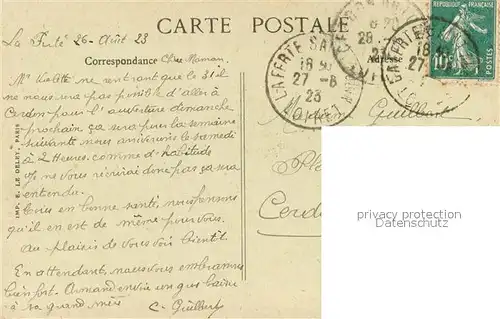 CARTE POSTALE
La Ferté 26 - Août 23
Correspondance
Adresse
Chère Maman,
Mr Violette ne rentrant que le 31 il
ne nous sera pas possible d'aller à
Cerdon pour l'ouverture dimanche
prochain ça sera pour la semaine
suivante nous arriverons le samedi
à 2 heures comme d'habitude
Je ne vous récrirai donc pas ça sera
entendu.
Tous en bonne santé, nous pensons
qu'il en est de même pour vous.
Au plaisir de vous voir bientôt.
En attendant, nous vous embrassons
bien fort. Armand envoie un gros baiser
à sa grand mère
C. Guilbert
Guilbert
Cerdon
LA FERTE
18
27-8
23
RÉPUBLIQUE FRANÇAISE
10c
IMP. E. LE DELEY, PARIS
privacy protection
Datenschutz